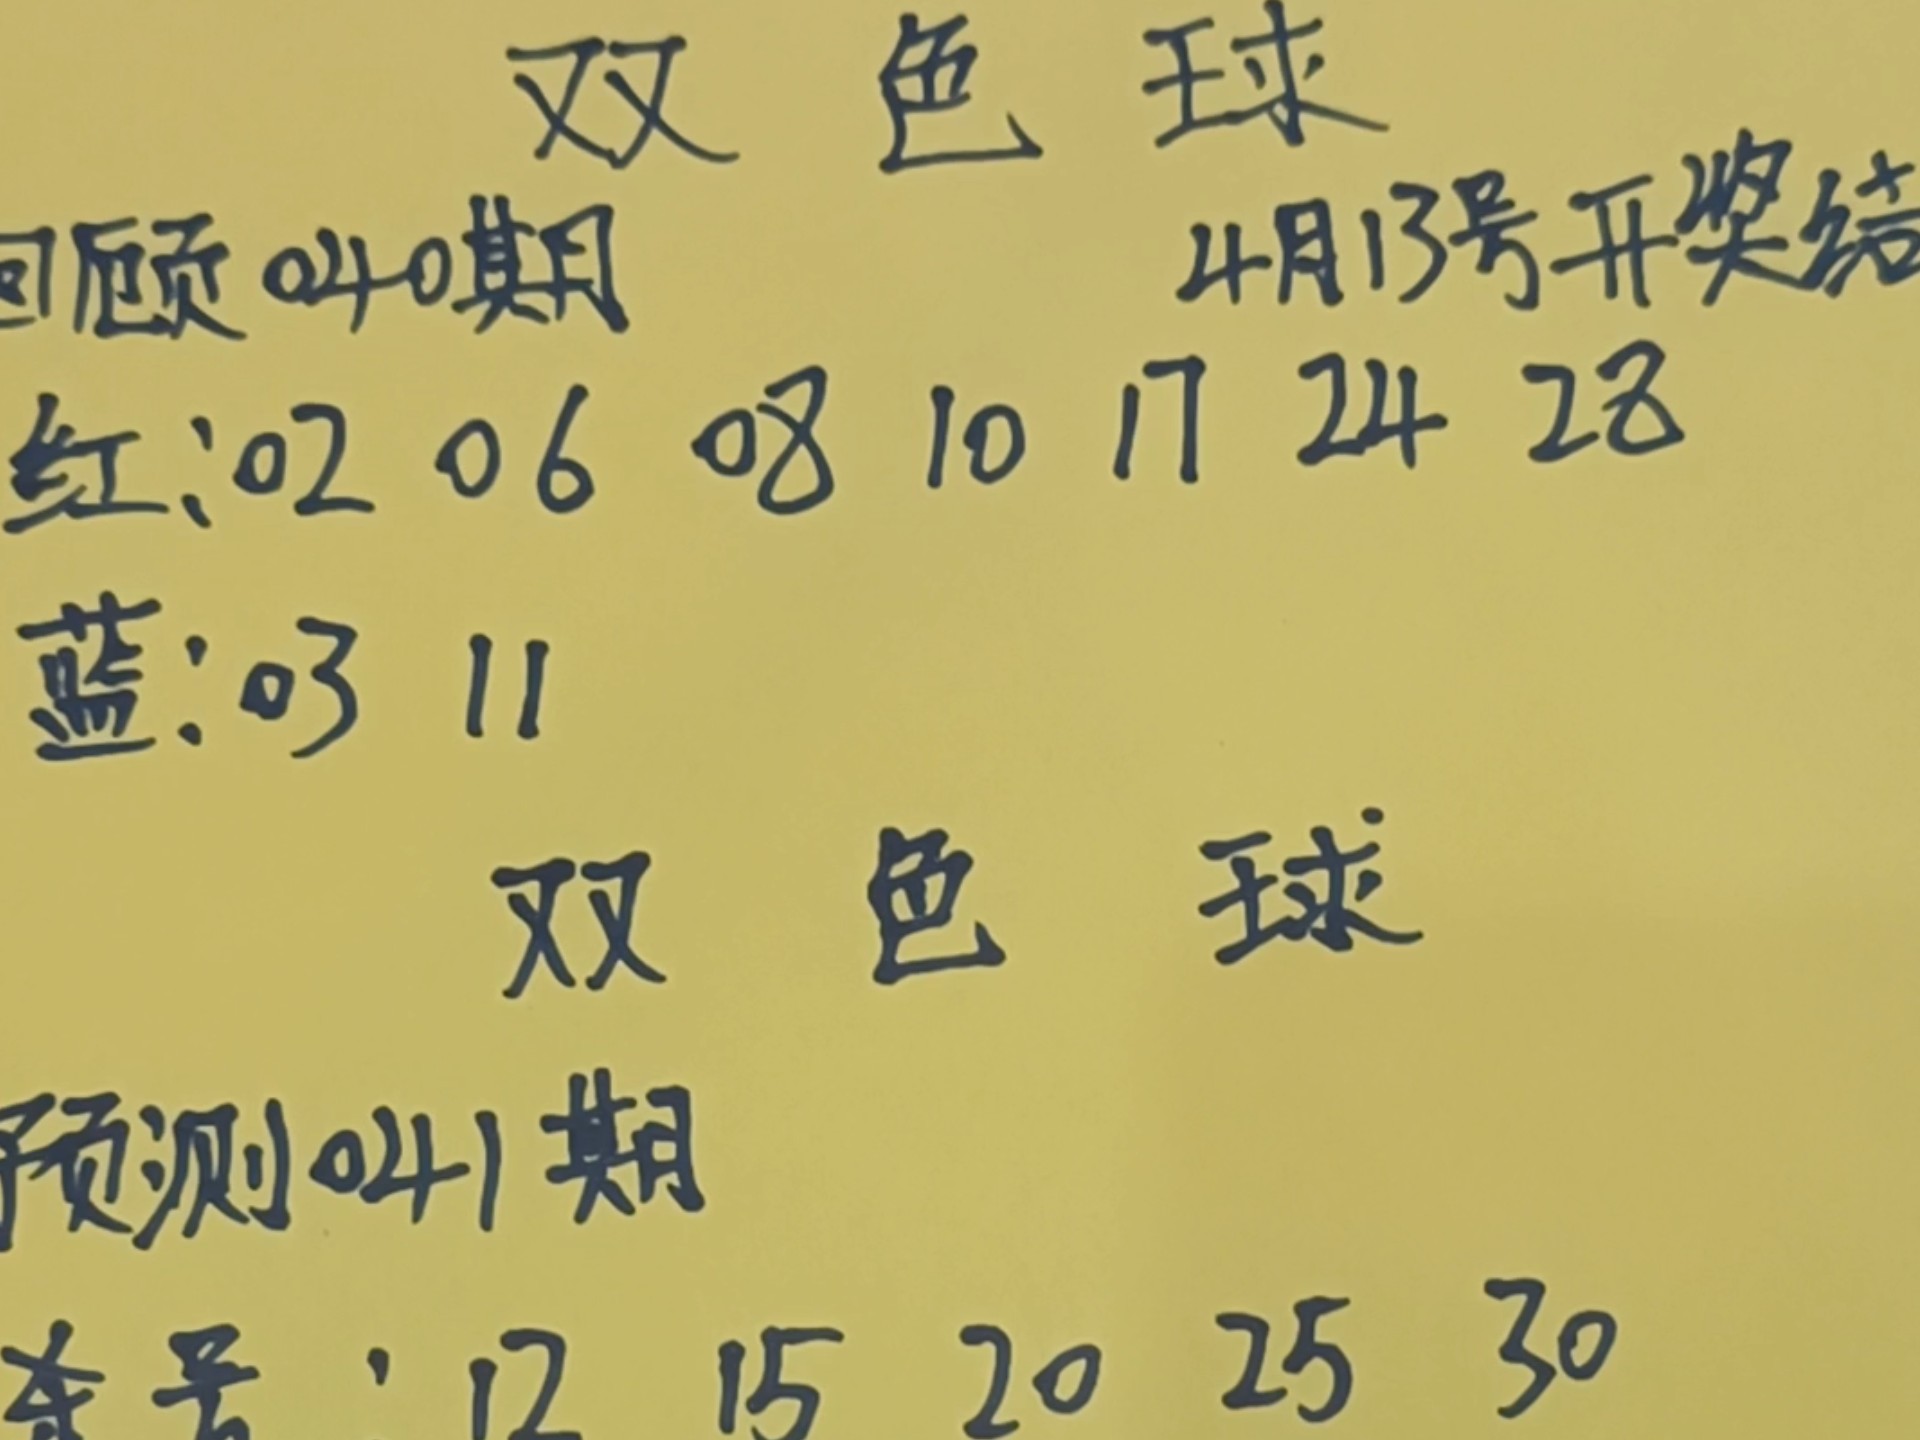 双色球
回顾040期 4月13号开奖结
红:02 06 08 10 17 24 28
蓝:03 11
双色球
预测041期
杀号:12 15 20 25 30